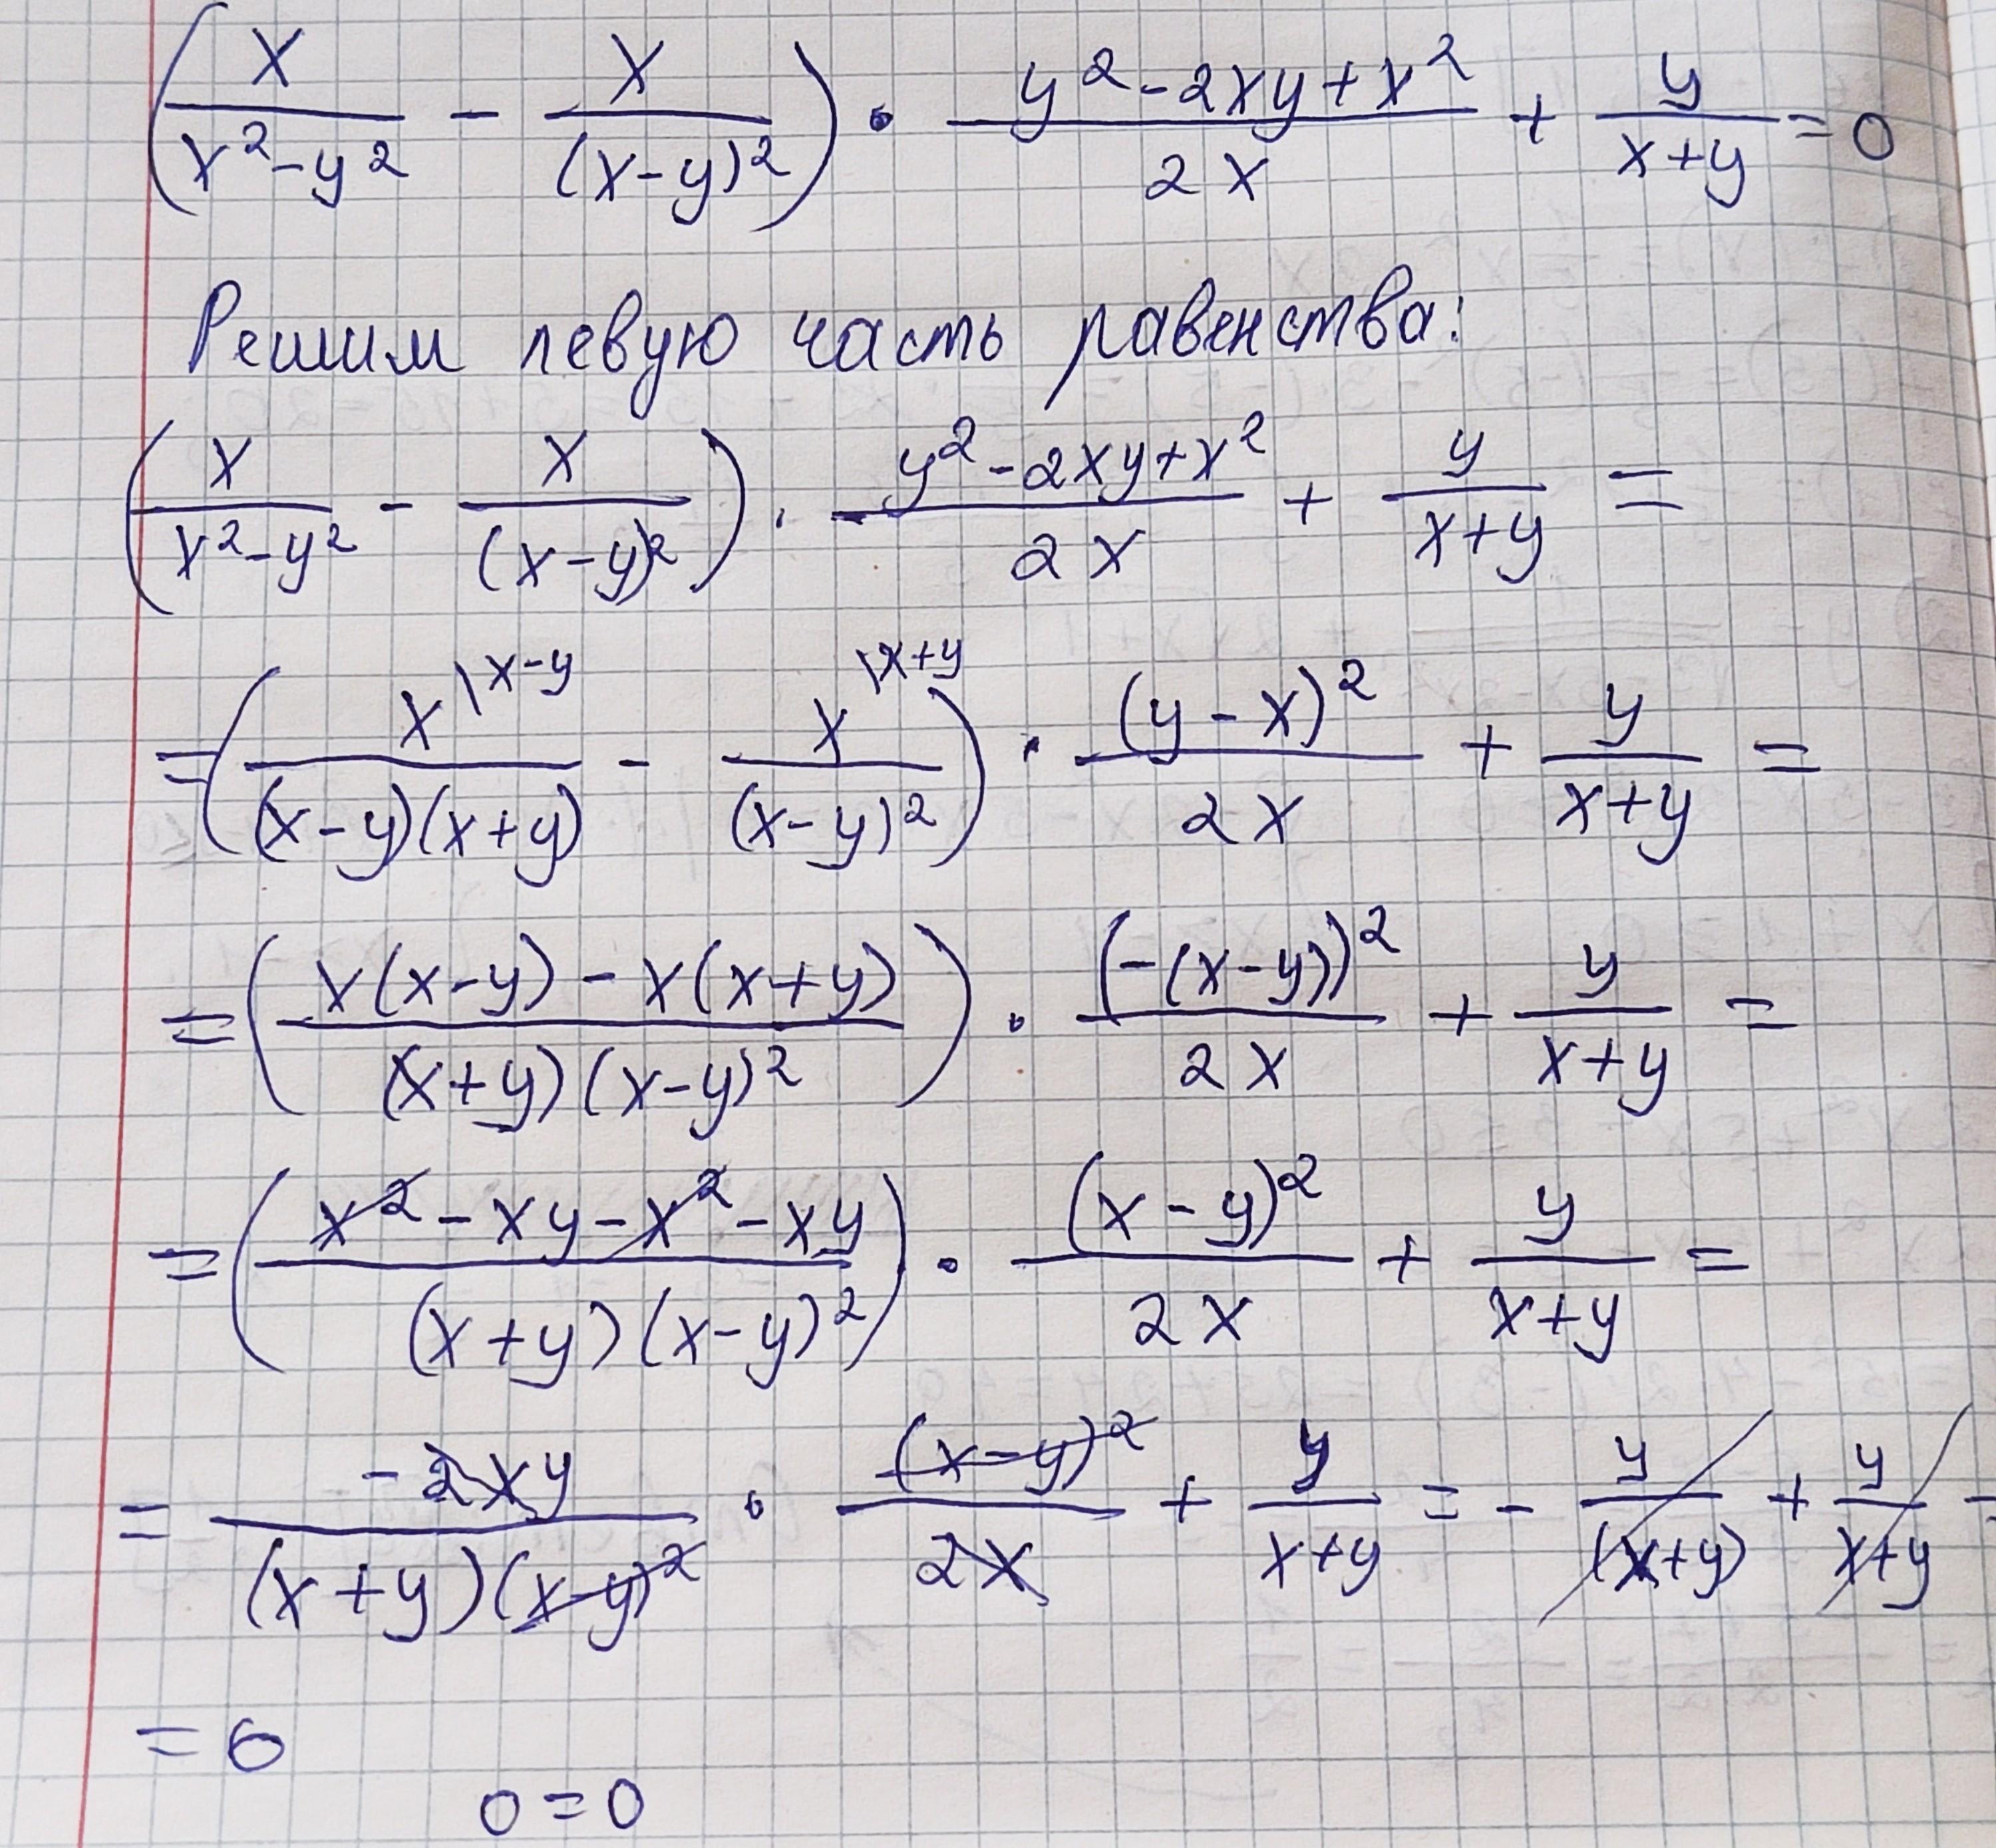 (x/(x²-y²) - x/(x-y)²) · (y²-2xy+x²)/2x + y/(x+y) = 0
Решим левую часть равенства:
(x/(x²-y²) - x/(x-y)²) · (y²-2xy+x²)/2x + y/(x+y) =
= (x\x-y/((x-y)(x+y)) - x\x+y/(x-y)²) · (y-x)²/2x + y/(x+y) =
= ((x(x-y) - x(x+y))/((x+y)(x-y)²)) · (-(x-y))²/2x + y/(x+y) =
= ((x²-xy-x²-xy)/((x+y)(x-y)²)) · (x-y)²/2x + y/(x+y) =
= -2xy/((x+y)(x-y)²) · (x-y)²/2x + y/(x+y) = - y/(x+y) + y/(x+y) =
= 0
0 = 0